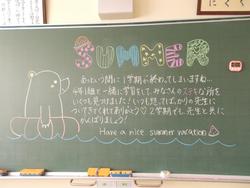 SUMMER
あっという間に1学期が終わってしまいますね…
4年1組で一緒に学習をして、みなさんのステキな所を
いくつも見つけました！いつも怒ってばっかりの先生に
ついてきてくれてありがとう♡2学期でも、先生と共に
がんばりましょう！
Have a nice summer vacation